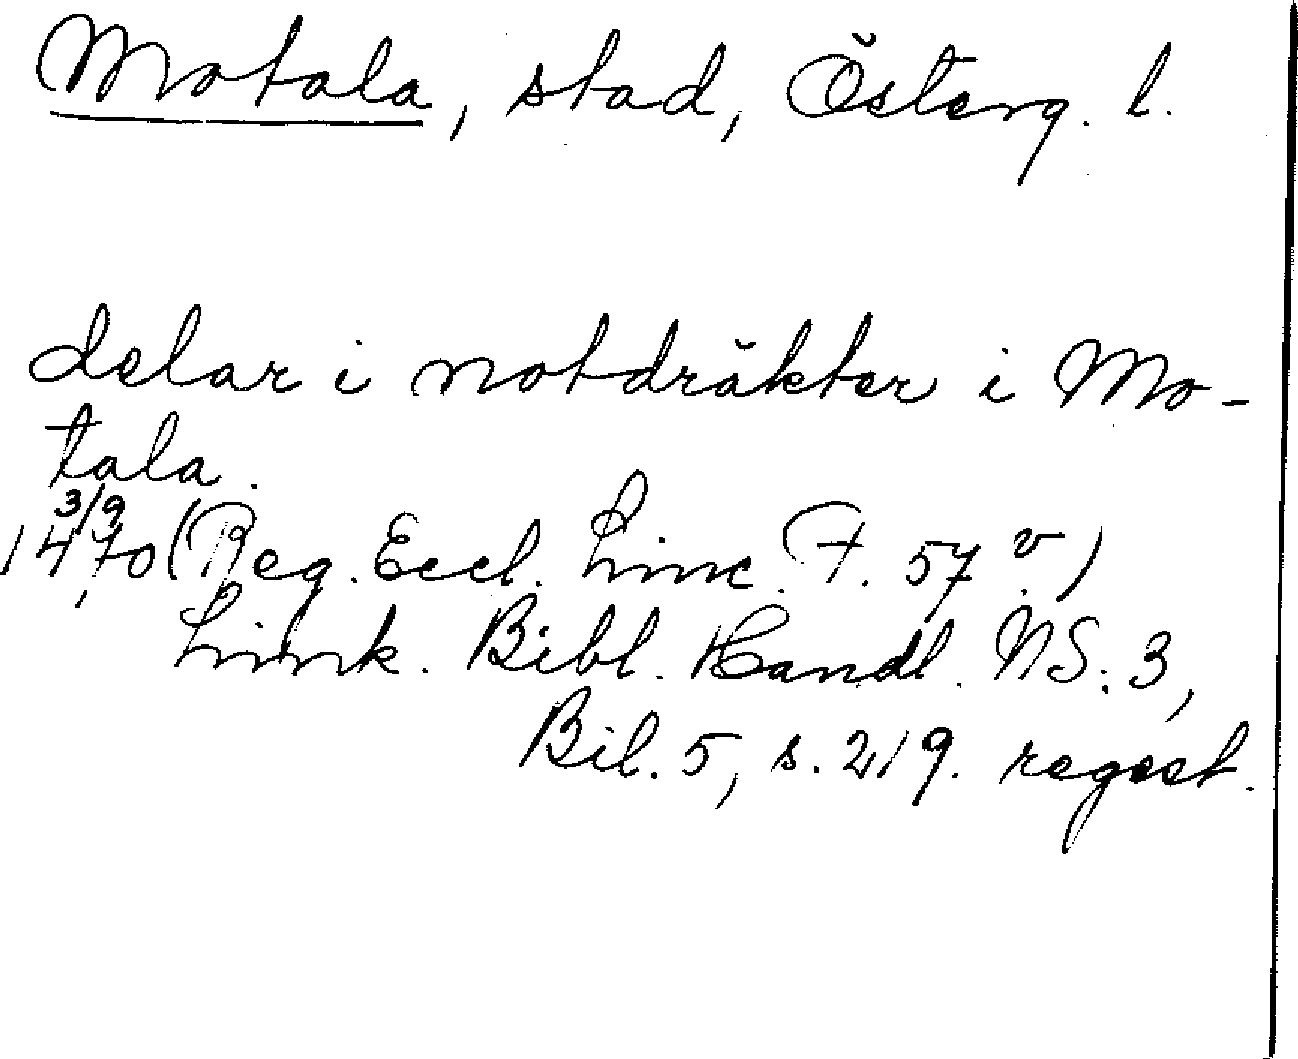 Motala, stad, Österg. l.
delar i notdräkter i Mo-
tala.
3/9
1470 (Reg. Eccl. Linc. F. 57 v.)
Link. Bibl. Handl. NS. 3,
Bil. 5, s. 219. regest.